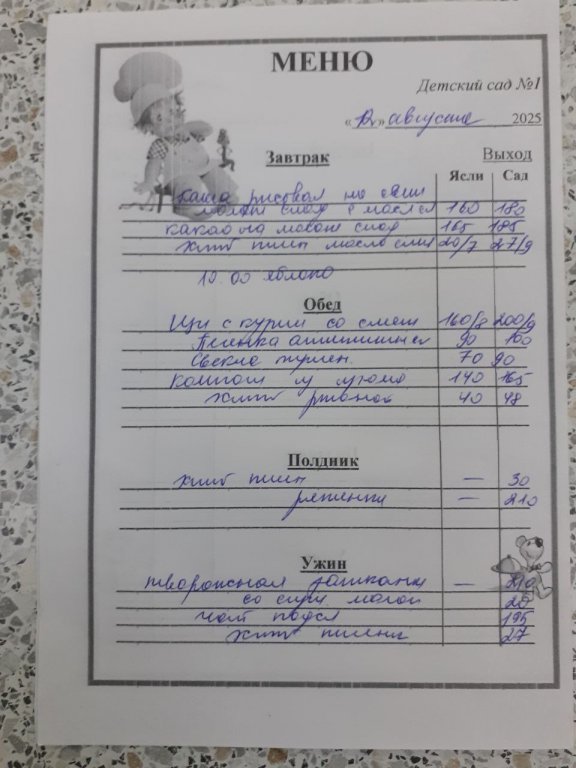 МЕНЮ
Детский сад №1
« » августа 2025
Завтрак Выход
Ясли Сад
Каша рисовая на
молоке слад с маслом 160 180
какао на молоке слад 165 185
хлеб пшен масло слив 20/7 27/9
10.00 яблоко
Обед
Щи с курин со смет 160/8 200/9
90 100
Свекла тушен. 70 90
компот 140 165
хлеб ржаной 40 48
Полдник
хлеб пшен — 30
ряженка — 210
Ужин
творожная запеканка — 210
со сгущ молок 20
чай подсл 195
хлеб пшенич 27